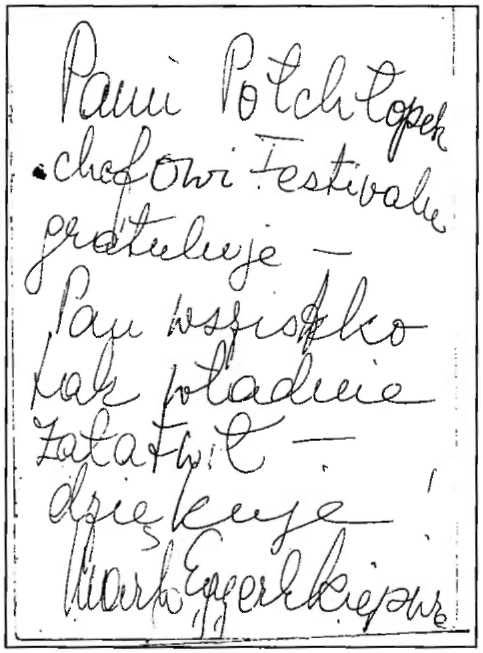 Panu Półchłopek
chefowi Festivalu
gratuluje —
Pan wszistko
tak wladnie
załatwił —
dziękuje!
Marta Eggerth Kiepura